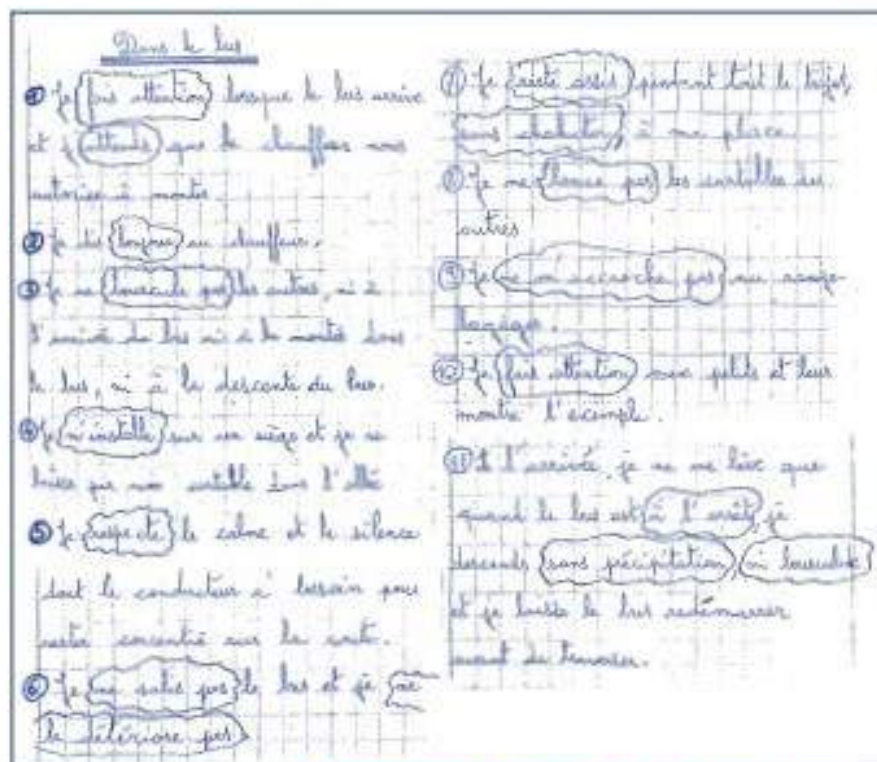 Dans le bus
① Je fais attention lorsque le bus arrive
et j'attends que le chauffeur nous
autorise à monter.
② Je dis bonjour au chauffeur.
③ Je ne bouscule pas les autres, ni à
l'arrivée du bus ni à la montée dans
le bus, ni à la descente du bus.
④ Je m'installe sur un siège et je ne
laisse pas mon cartable dans l'allé
⑤ Je respecte le calme et le silence
dont le conducteur a besoin pour
rester concentré sur la route.
⑥ Je ne salis pas le bus et je ne
le détériore pas
Je reste assis pendant tout le trajet,
sans chahuter, à ma place
Je ne lance pas les cartables des
autres
Je ne m'accroche pas au range
bagages.
⑩ Je fais attention aux petits et leur
montre l'exemple.
⑪ A l'arrivée, je ne me lève que
quand le bus est à l'arrêt, je
descends sans précipitation, ni bousculade
et je laisse le bus redémarrer
avant de traverser.